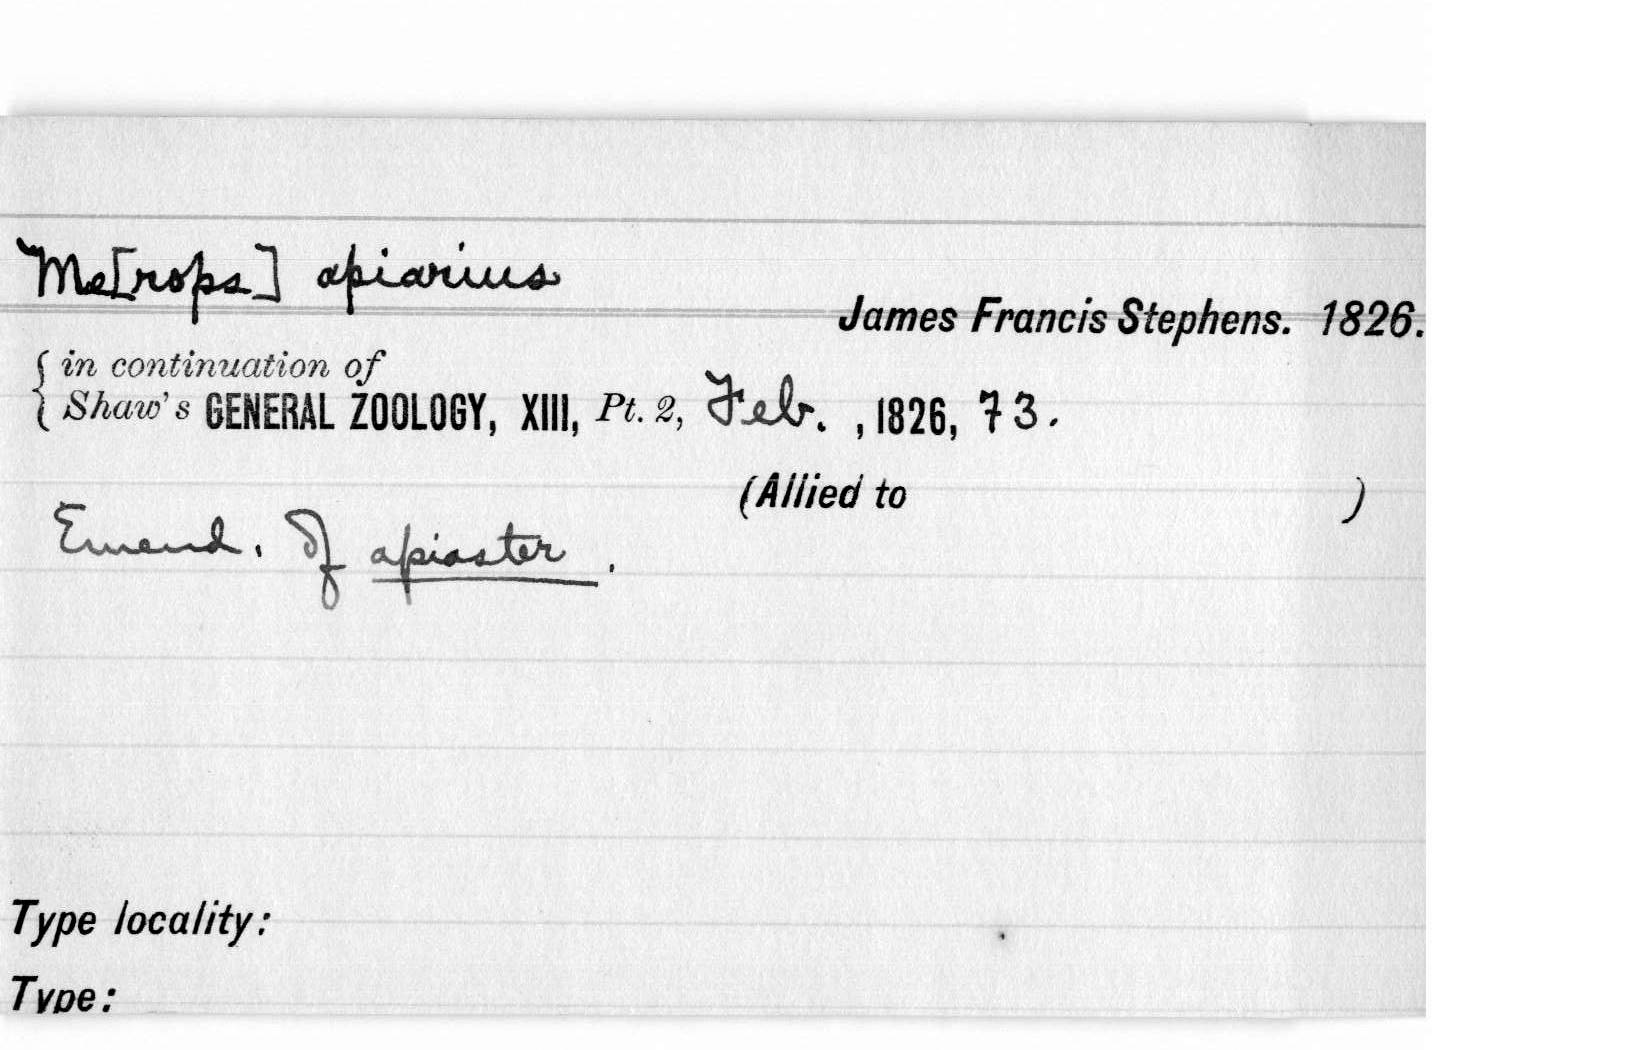 Me[rops] apiarius
James Francis Stephens. 1826.
in continuation of
Shaw's GENERAL ZOOLOGY, XIII, Pt. 2, Feb. , 1826, 73.
(Allied to )
Emend. Of apiaster .
Type locality:
Type: